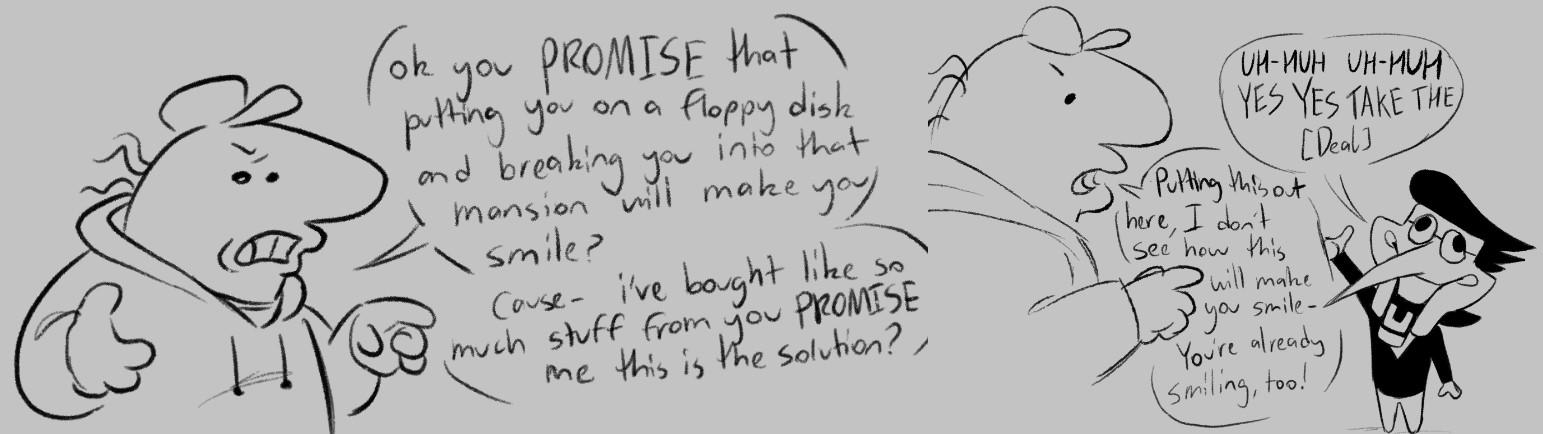 ok you PROMISE that
putting you on a floppy disk
and breaking you into that
mansion will make you
smile?
Cause- i've bought like so
much stuff from you PROMISE
me this is the solution?
UH-HUH UH-HUH
YES YES TAKE THE
[Deal]
Putting this out
here, I don't
see how this
will make
you smile-
You're already
smiling, too!